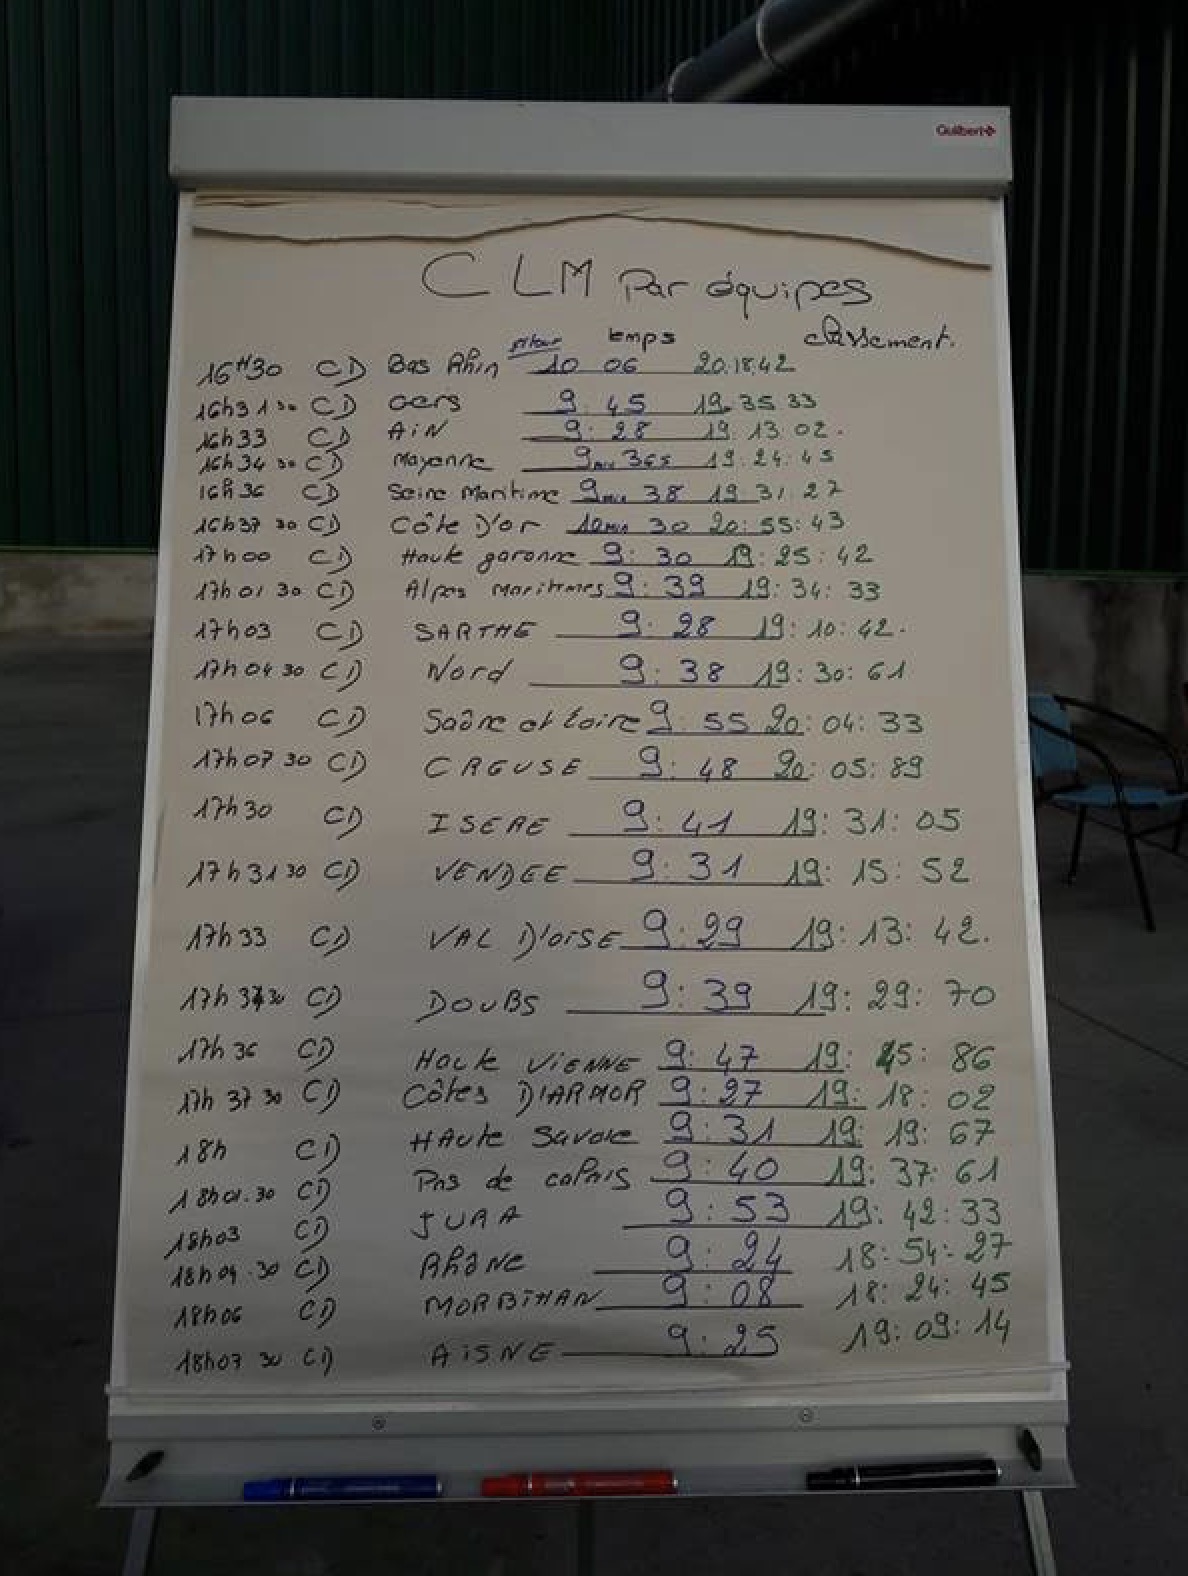 Guilbert
CLM Par équipes
temps classement.
16H30 CD Bas Rhin 10 06 20.18.42
16h31 30 CD Gers 9. 45 19.35 33
16h33 CD AiN 9: 28 19: 13 02.
16h34 30 CD Mayenne 9min 36s 19:24:45
16h36 CD Seine Maritime 9min 38 19 31 27
16h37 30 CD Côte D'or 10min 30 20:55:43
17h00 CD Haute garonne 9: 30 19:25:42
17h01 30 CD Alpes Maritimes 9:39 19:34:33
17h03 CD SARTHE 9: 28 19:10:42.
17h04 30 CD Nord 9: 38 19:30:61
17h06 CD Saône et Loire 9: 55 20:04:33
17h07 30 CD CREUSE 9: 48 20:05:89
17h30 CD ISERE 9: 41 19:31:05
17h31 30 CD VENDEE 9: 31 19: 15:52
17h33 CD VAL D'OISE 9:29 19:13:42.
17h 30 CD DOUBS 9: 39 19:29:70
17h36 CD Haute VIENNE 9: 47 19: 45: 86
17h 37 30 CD Côtes D'ARMOR 9:27 19: 18: 02
18h CD HAute Savoie 9:31 19: 19: 67
18h01.30 CD Pas de calais 9: 40 19: 37: 61
18h03 CD JURA 9: 53 19: 42:33
18h04.30 CD Rhône 9: 24 18:54:27
18h06 CD MORBIHAN 9: 08 18: 24: 45
18h07 30 CD AiSNE 9: 25 19:09:14